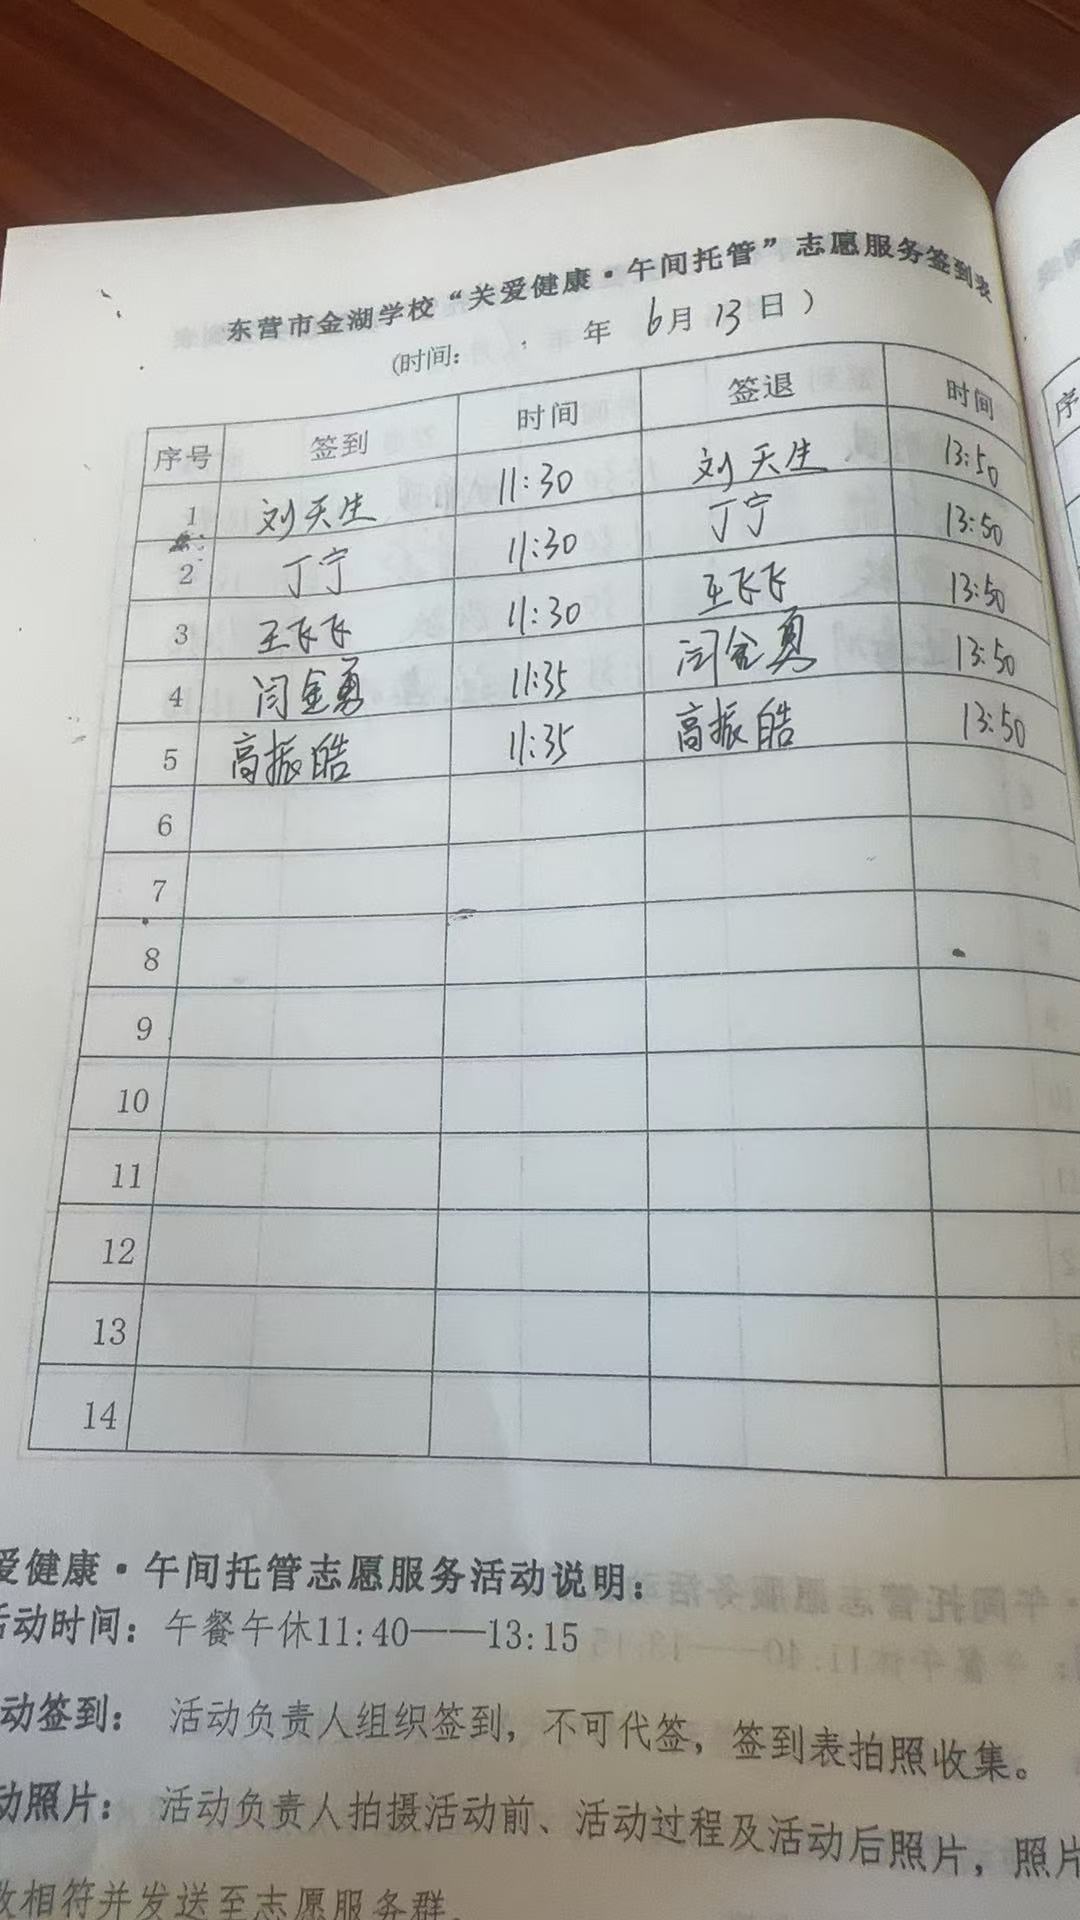 东营市金湖学校“关爱健康·午间托管”志愿服务签到表
(时间: 年 6月13日)
序号 签到 时间 签退 时间
1 刘天生 11:30 刘天生 13:50
2 丁宁 11:30 丁宁 13:50
3 王飞飞 11:30 王飞飞 13:50
4 闫金勇 11:35 闫金勇 13:50
5 高振皓 11:35 高振皓 13:50
6
7
8
9
10
11
12
13
14
爱健康·午间托管志愿服务活动说明:
活动时间: 午餐午休11:40——13:15
动签到: 活动负责人组织签到,不可代签,签到表拍照收集。
动照片: 活动负责人拍摄活动前、活动过程及活动后照片,照片
数相符并发送至志愿服务群。
序